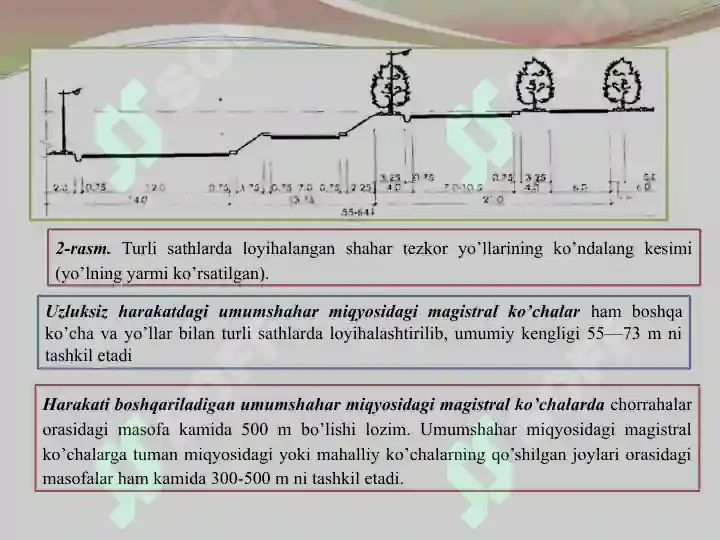 3.25 0.75 0.75 3.25
2.0 0.75 12.0 0.75 1.75 0.75 7.0 0.75 2.25 4.0 7.0-10.5 4.0 6.0 6.0
14.0
55-64
2-rasm. Turli sathlarda loyihalangan shahar tezkor yo’llarining ko’ndalang kesimi
(yo’lning yarmi ko’rsatilgan).
Uzluksiz harakatdagi umumshahar miqyosidagi magistral ko’chalar ham boshqa
ko’cha va yo’llar bilan turli sathlarda loyihalashtirilib, umumiy kengligi 55—73 m ni
tashkil etadi
Harakati boshqariladigan umumshahar miqyosidagi magistral ko’chalarda chorrahalar
orasidagi masofa kamida 500 m bo’lishi lozim. Umumshahar miqyosidagi magistral
ko’chalarga tuman miqyosidagi yoki mahalliy ko’chalarning qo’shilgan joylari orasidagi
masofalar ham kamida 300-500 m ni tashkil etadi.